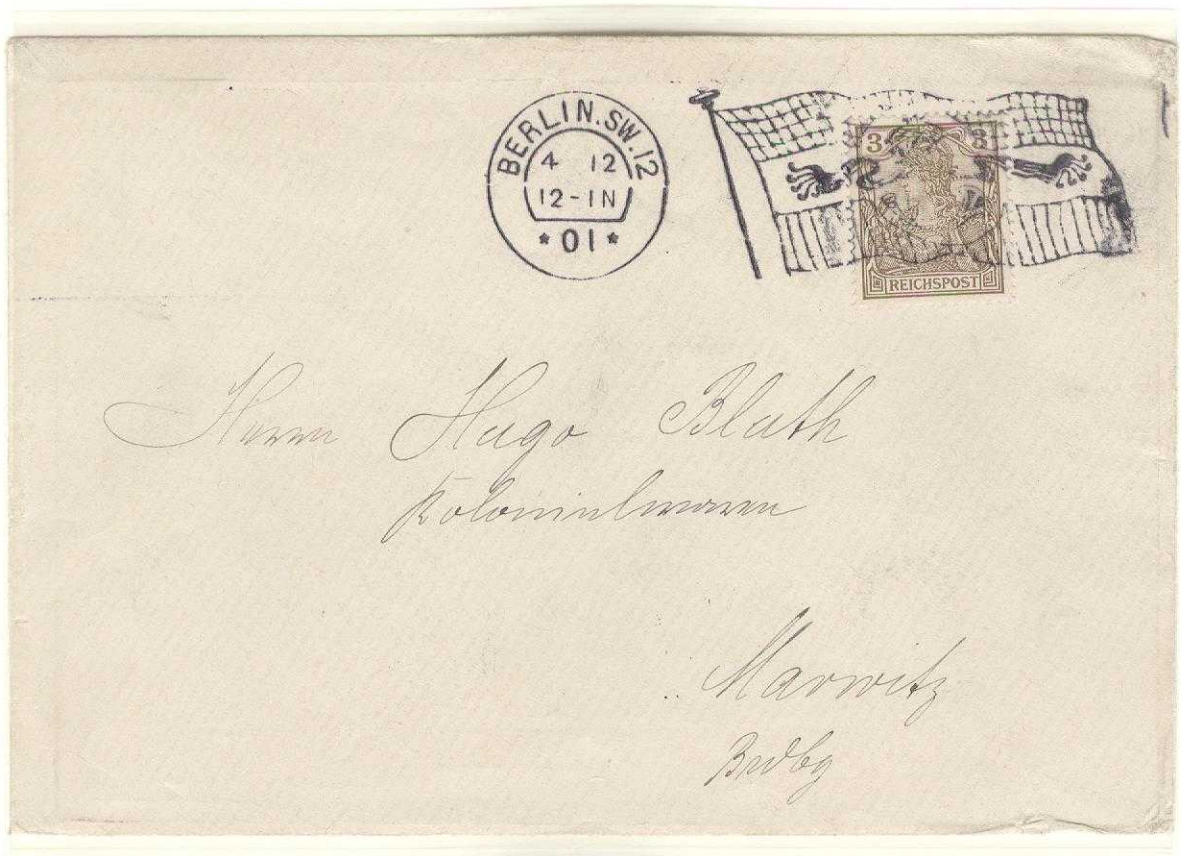 BERLIN.SW.12
4 12
12-1N
*01*
3 3
REICHSPOST
Herrn Hugo Blath
Kolonialwaren
Marwitz
Brdbg